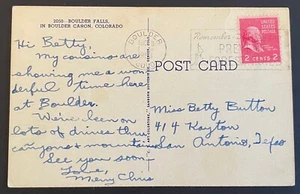 3050 - BOULDER FALLS,
IN BOULDER CANON, COLORADO
Hi Betty!
My cousins are
showing me a won-
derful time here
at Boulder.
We've been on
lots of drives thru
canyons & mountains
See you soon
Love,
BOULDER
POST CARD
2 CENTS 2
Miss Betty Button
414 Kayton
San Antonio, Texas